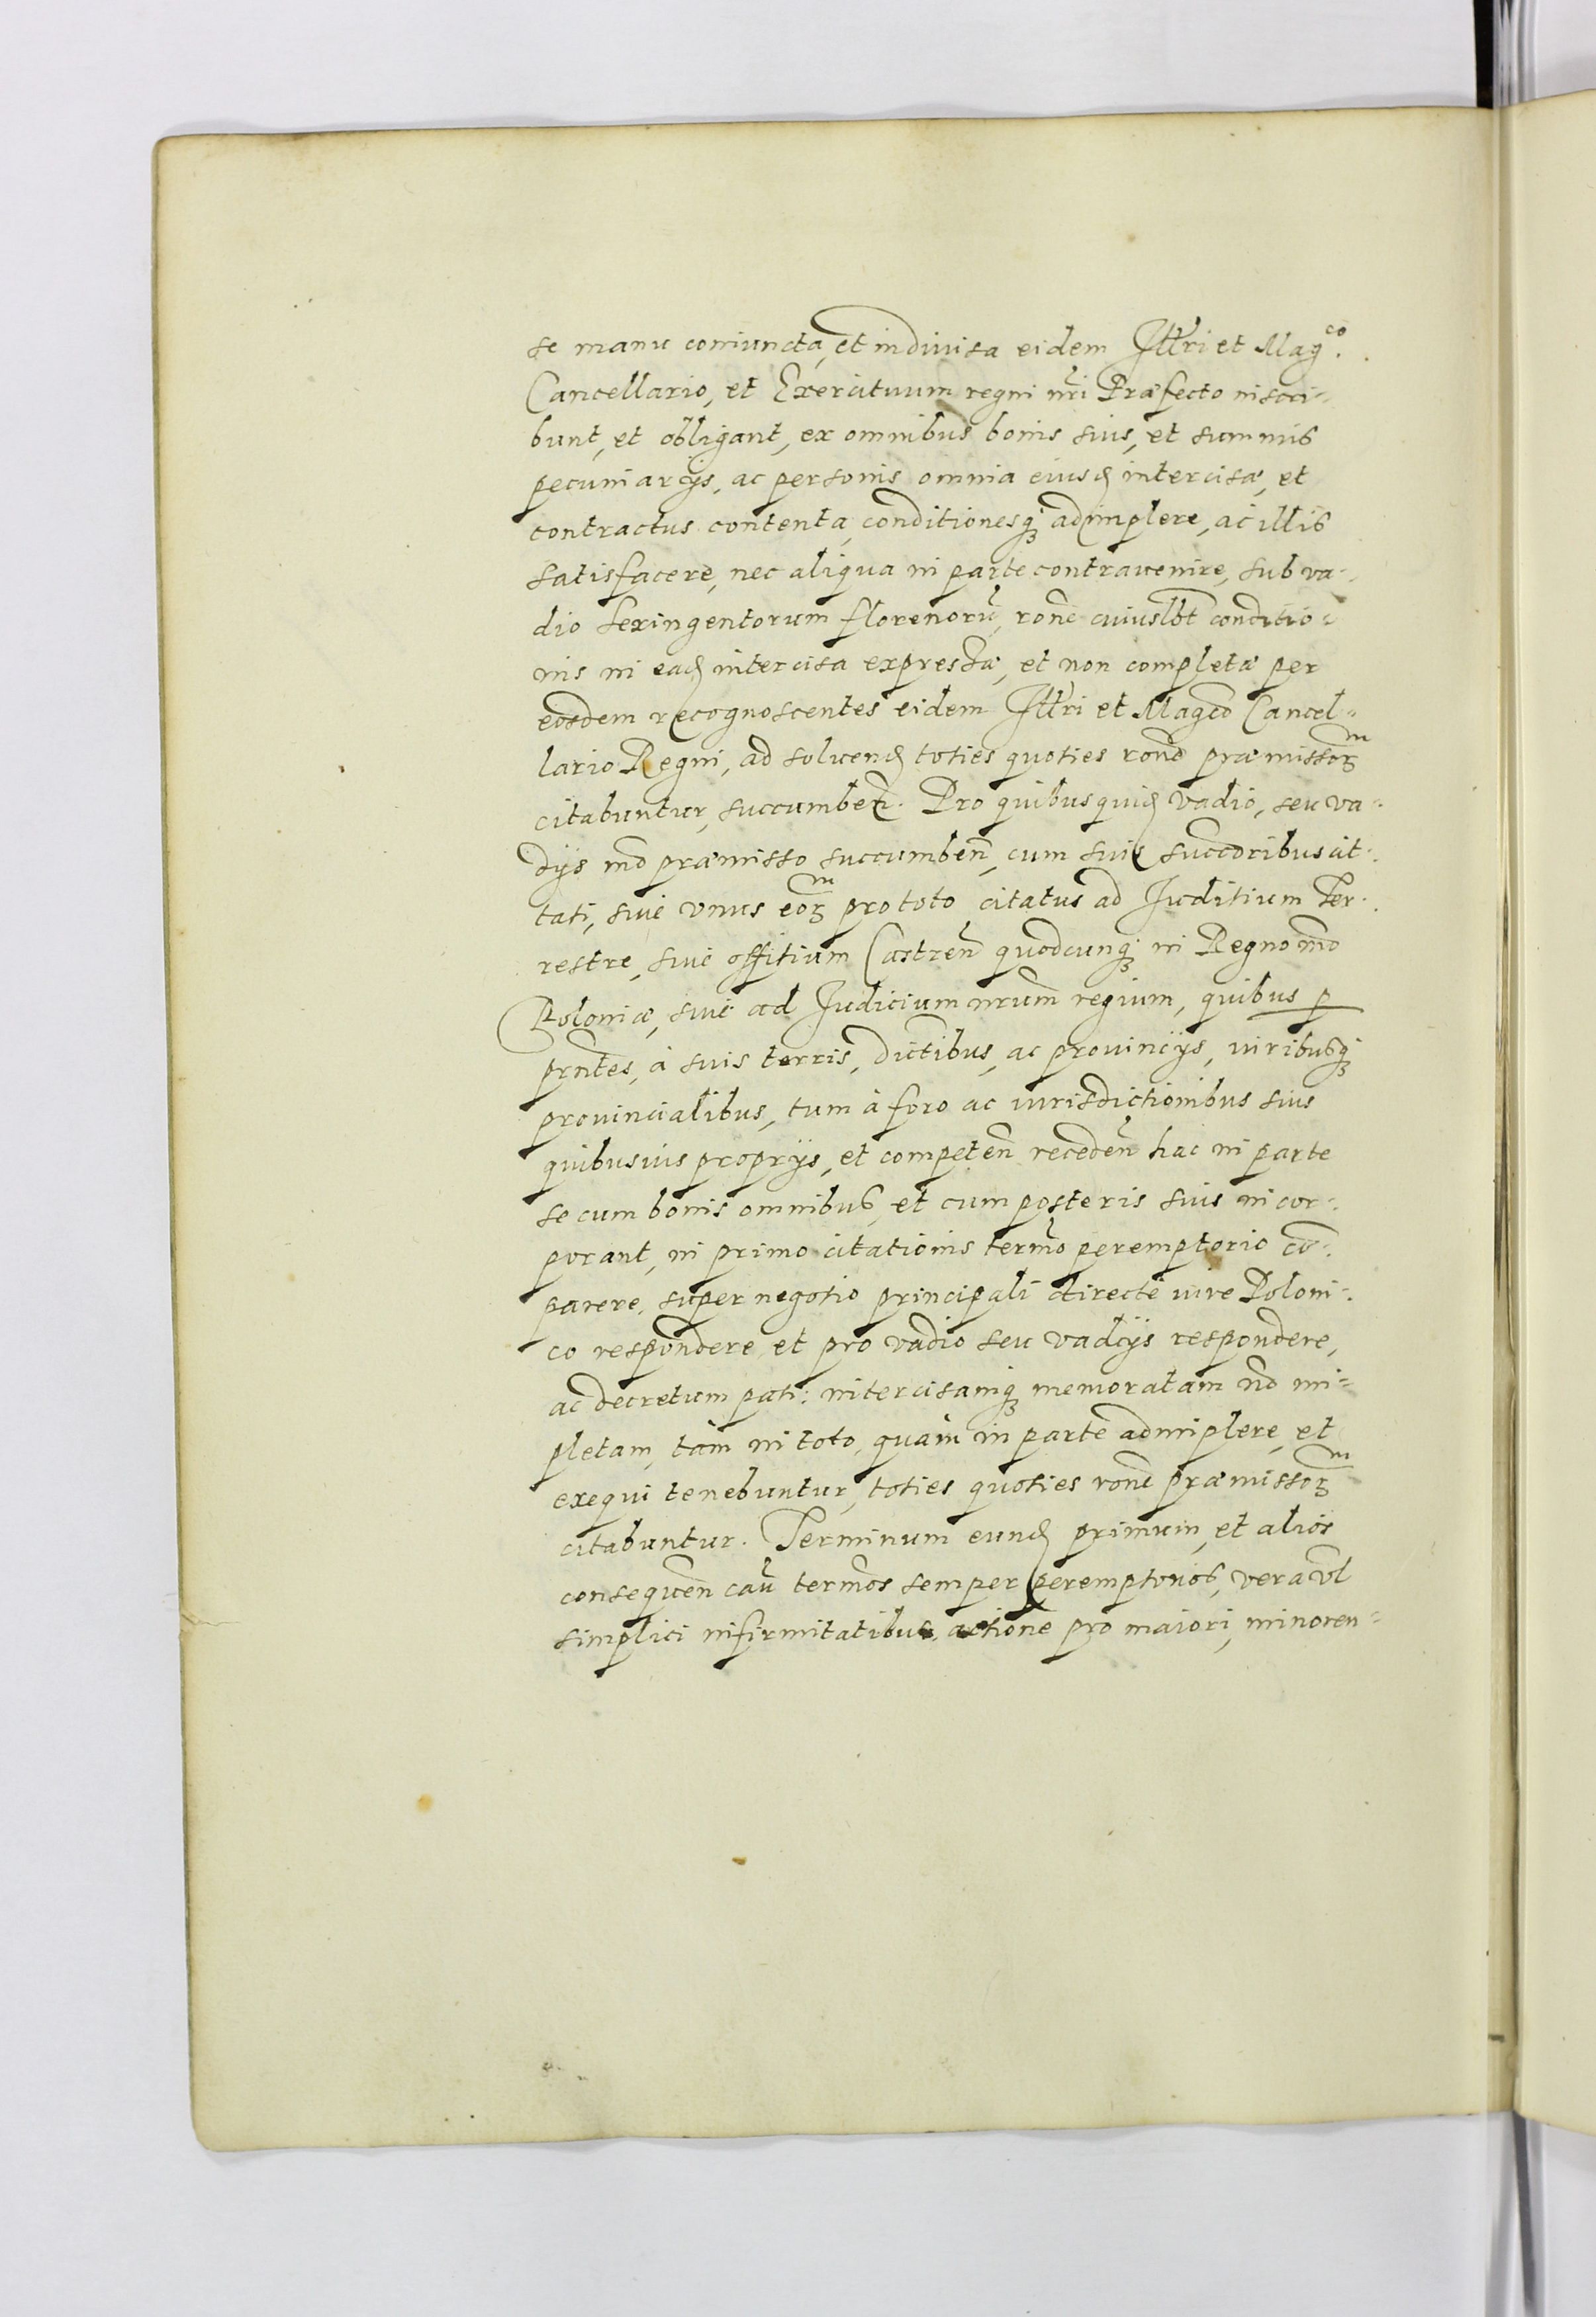 se manu coniuncta, et indiuisa eidem Illri et Magco.
Cancellario, et Exercituum regni nri Præfecto inscri-
bunt, et obligant, ex omnibus bonis suis, et summis
pecuniarijs, ac personis omnia eiusd intercisæ, et
contractus contenta, conditionesq adimplere, ac illis
satisfacere, nec aliqua in parte contrauenire, sub va-
dio sexingentorum florenorũ, rone cuiuslbt conditio-
nis in ead intercisa expressæ, et non completæ per
eosdem recognoscentes eidem Illri et Magco Cancel-
lario Regni, ad soluend toties quoties rone præmissorum
citabuntur, succumben. Pro quibusquid vadio, seu va-
dijs mo præmisso succumben, cum suis succoribus cit-
tati, siue vnus eorum pro toto citatus ad Iuditium Ter-
restre, siue offitium Castren quodcunq in Regno nro
Poloniæ, siue ad Iudicium nrum regium, quibus p
prntes, à suis terris, dictibus, ac prouincijs, iuribusq
prouincialibus, tum à foro ac iurisdictionibus suis
quibusuis proprijs, et competen receden hac in parte
se cum bonis omnibus, et cum posteris suis incor-
porant, in primo citationis termo peremptorio co-
parere, super negotio principali directe iure Poloni-
co respondere, et pro vadio seu vadijs respondere,
ac decretum pati: intercisamq memoratam no im-
pletam, tàm in toto, quàm in parte adimplere, et
exequi tenebuntur, toties quoties rone præmissorum
citabuntur. Terminum eund primum, et alios
consequen cau termos semper peremptorios, vera vl
simplici infirmitatibus, actione pro maiori, minoren-